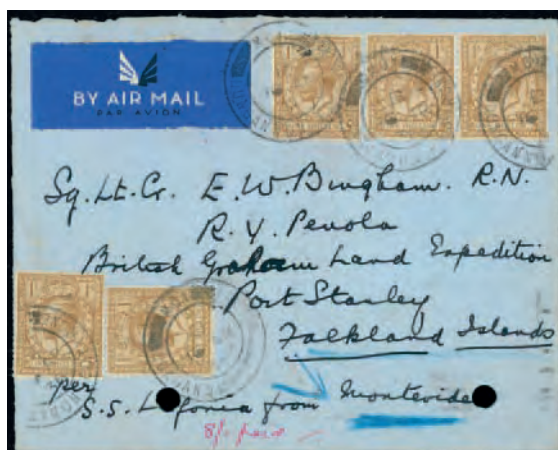 BY AIR MAIL
PAR AVION
1 1 1
Sg. Lt. Cr. E. W. Bingham. R.N.
R. Y. Penola
British Graham Land Expedition
Port Stanley
Falkland Islands
1 1
per
S.S. Lafonia from Montevideo